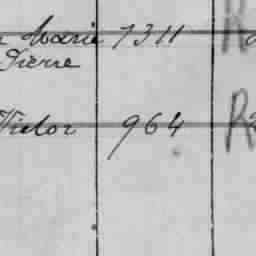 Marie 7311 R
Pierre
Victor 964 R